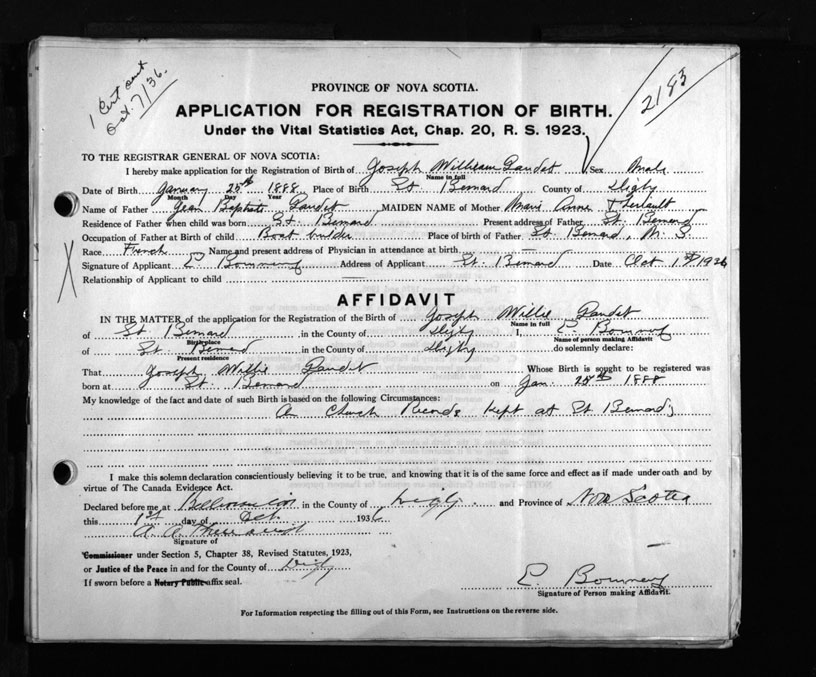 1 Cert sent
Oct. 7/36.
2183
PROVINCE OF NOVA SCOTIA.
APPLICATION FOR REGISTRATION OF BIRTH.
Under the Vital Statistics Act, Chap. 20, R. S. 1923.
TO THE REGISTRAR GENERAL OF NOVA SCOTIA:
I hereby make application for the Registration of Birth of Joseph William Gaudet Sex Male
Name in full
Date of Birth January 25th 1888 Place of Birth St. Bernard County of Digby
Month Day Year
Name of Father Jean Baptiste Gaudet MAIDEN NAME of Mother Marie Anne Theriault
Residence of Father when child was born St. Bernard Present address of Father St. Bernard
Occupation of Father at Birth of child Boat builder Place of birth of Father St. Bernard, N. S.
Race French Name and present address of Physician in attendance at birth
Signature of Applicant E. Address of Applicant St. Bernard Date Oct 1st 1936
Relationship of Applicant to child
AFFIDAVIT
IN THE MATTER of the application for the Registration of the Birth of Joseph Willie Gaudet
Name in full
of St Bernard in the County of Digby I, E
Birthplace Name of person making Affidavit
of St Bernard in the County of Digby do solemnly declare:
Present residence
That Joseph Willie Gaudet Whose Birth is sought to be registered was
born at St. Bernard on Jan. 25th 1888
My knowledge of the fact and date of such Birth is based on the following Circumstances:
Church Records kept at St Bernard's
I make this solemn declaration conscientiously believing it to be true, and knowing that it is of the same force and effect as if made under oath and by
virtue of The Canada Evidence Act.
Declared before me at in the County of Digby and Province of Nova Scotia
this 1st day of Oct 1936
A. A. Theriault
Signature of
Commissioner under Section 5, Chapter 38, Revised Statutes, 1923,
or Justice of the Peace in and for the County of Digby
If sworn before a Notary Public affix seal.
E.
Signature of Person making Affidavit.
For Information respecting the filling out of this Form, see Instructions on the reverse side.